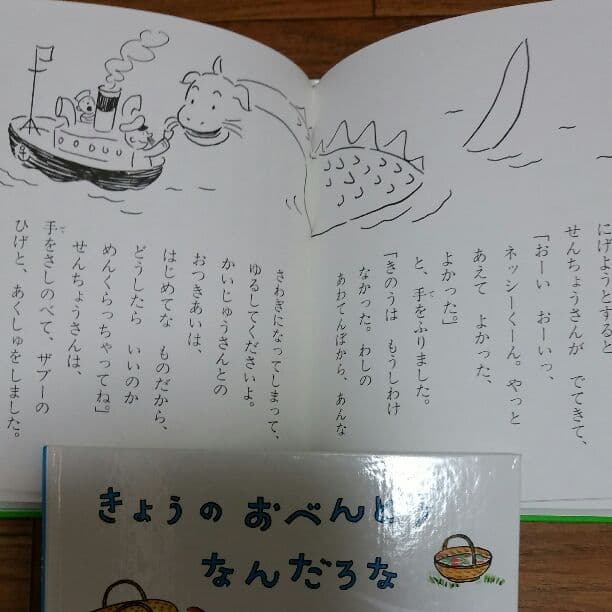 にげようとすると
せんちょうさんが でてきて、
「おーい おーいっ、
ネッシーくーん。やっと
あえて よかった、
よかった」
と、手をふりました。
「きのうは もうしわけ
なかった。わしの
あわてんぼから、あんな
さわぎになってしまって、
ゆるしてくださいよ。
かいじゅうさんとの
おつきあいは、
はじめてな ものだから、
どうしたら いいのか
めんくらっちゃってね」
せんちょうさんは、
手をさしのべて、ザブーの
ひげと、あくしゅをしました。
きょうの おべんとう
なんだろな